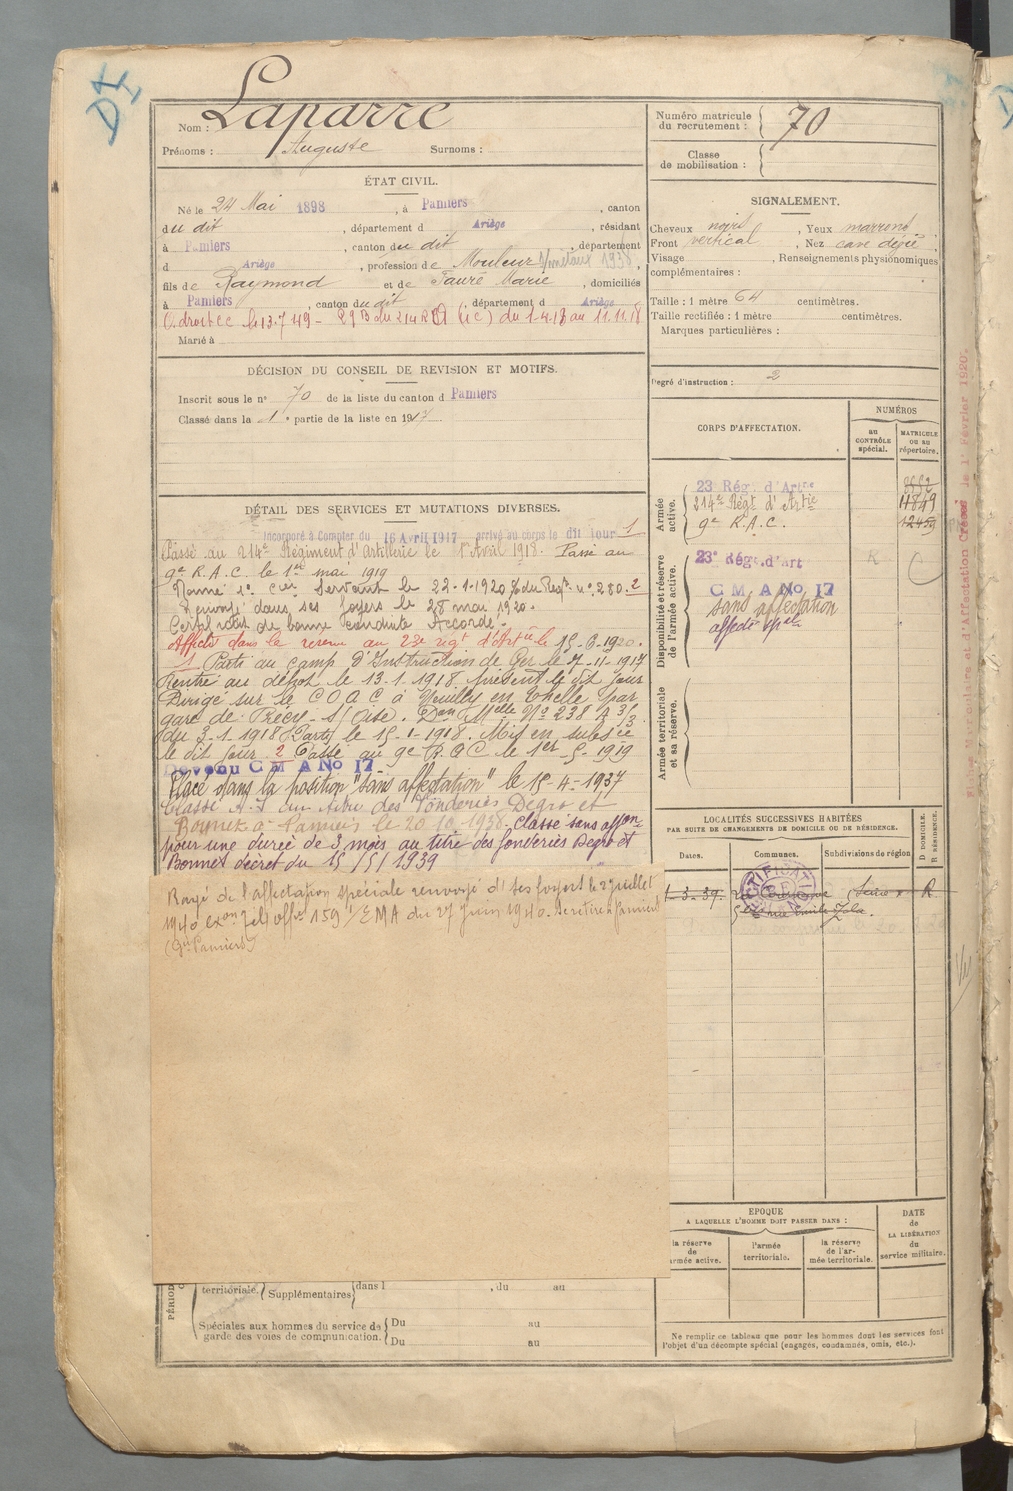 DI
Nom : Laparre
Prénoms : Auguste Surnoms :
Numéro matricule du recrutement : 70
Classe de mobilisation :
ÉTAT CIVIL.
Né le 24 Mai 1898, à Pamiers, canton
du dit, département d Ariège, résidant
à Pamiers, canton du dit, département
d Ariège, profession de Mouleur s/métaux 1938,
fils de Raymond et de Fauré Marie, domiciliés
à Pamiers, canton du dit, département d Ariège
C. droit CC le 13.7.49 - 29 B du 214 RA (UC) du 1.4.18 au 11.11.18
Marié à
SIGNALEMENT.
Cheveux noirs, Yeux marrons
Front vertical, Nez cave
Visage , Renseignements physionomiques
complémentaires :
Taille : 1 mètre 64 centimètres.
Taille rectifiée : 1 mètre centimètres.
Marques particulières :
Degré d'instruction : 2
DÉCISION DU CONSEIL DE REVISION ET MOTIFS.
Inscrit sous le n° 70 de la liste du canton d Pamiers
Classé dans la 1e partie de la liste en 1917
DÉTAIL DES SERVICES ET MUTATIONS DIVERSES.
Incorporé à Compter du 16 Avril 1917 arrivé au corps le dit jour 1
Passé au 214e Régiment d'artillerie le 1er Avril 1918. Passé au
9e R.A.C. le 1er mai 1919
Nommé 1er Cer Servant le 22-1-1920 % du Regt n° 280. 2
Renvoyé dans ses foyers le 28 mai 1920.
Certificat de bonne conduite Accordé.
Affecté dans la réserve au 23e régt d'Artie le 15-6-1920.
1 Parti au camp d'Instruction de Ger le 7-11-1917
Rentré au dépôt le 13-1-1918 présent le dit jour
Dirigé sur le C O A C à Neuilly en Thelle par
gare de Précy-s/Oise. Don Melle N° 238
du 3-1-1918 Parti le 15-1-1918. Mis en subsce
le dit jour. 2 Passé au 9e R A C le 1er-5-1919
Devenu C M A No 17
Placé dans la position "sans affectation" le 15-4-1937
Classé A.S. au titre des Fonderies Degro et
Bonnet à Pamiers le 20-10-1938. Classé sans affon
pour une durée de 3 mois au titre des fonderies Degro et
Bonnet décret du 15/5/1939
Rayé de l'affectation spéciale renvoyé d' ses foyers le 2 juillet
1940 159 /EMA du 27 Juin 1940. Se retire à Pamiers
(Gie Pamiers)
CORPS D'AFFECTATION.
NUMÉROS
au CONTRÔLE spécial.
MATRICULE ou au répertoire.
Armée active.
23 Rég. d'Artrie
214e Régt d'Artie 11849
9e R.A.C. 12459
Disponibilité et réserve de l'armée active.
23e Régt. d'art R
C M A No 17
sans affectation
affecté spal
Armée territoriale et sa réserve.
LOCALITÉS SUCCESSIVES HABITÉES
PAR SUITE DE CHANGEMENTS DE DOMICILE OU DE RÉSIDENCE.
Dates. Communes. Subdivisions de région D DOMICILE. R RÉSIDENCE.
1-3-39. La Courneuve Seine R
rue Emile Zola.
RECTIFICATION
EPOQUE
A LAQUELLE L'HOMME DOIT PASSER DANS :
la réserve de armée active.
l'armée territoriale.
la réserve de l'armée territoriale.
DATE de LA LIBÉRATION du service militaire.
territoriale. Supplémentaires dans l , du au
Spéciales aux hommes du service de garde des voies de communication.
Du au
Du au
Ne remplir ce tableau que pour les hommes dont les services font
l'objet d'un décompte spécial (engagés, condamnés, omis, etc.).
Fiches Matriculaire et d'Affectation Créées le 1er Février 1920.
Vu